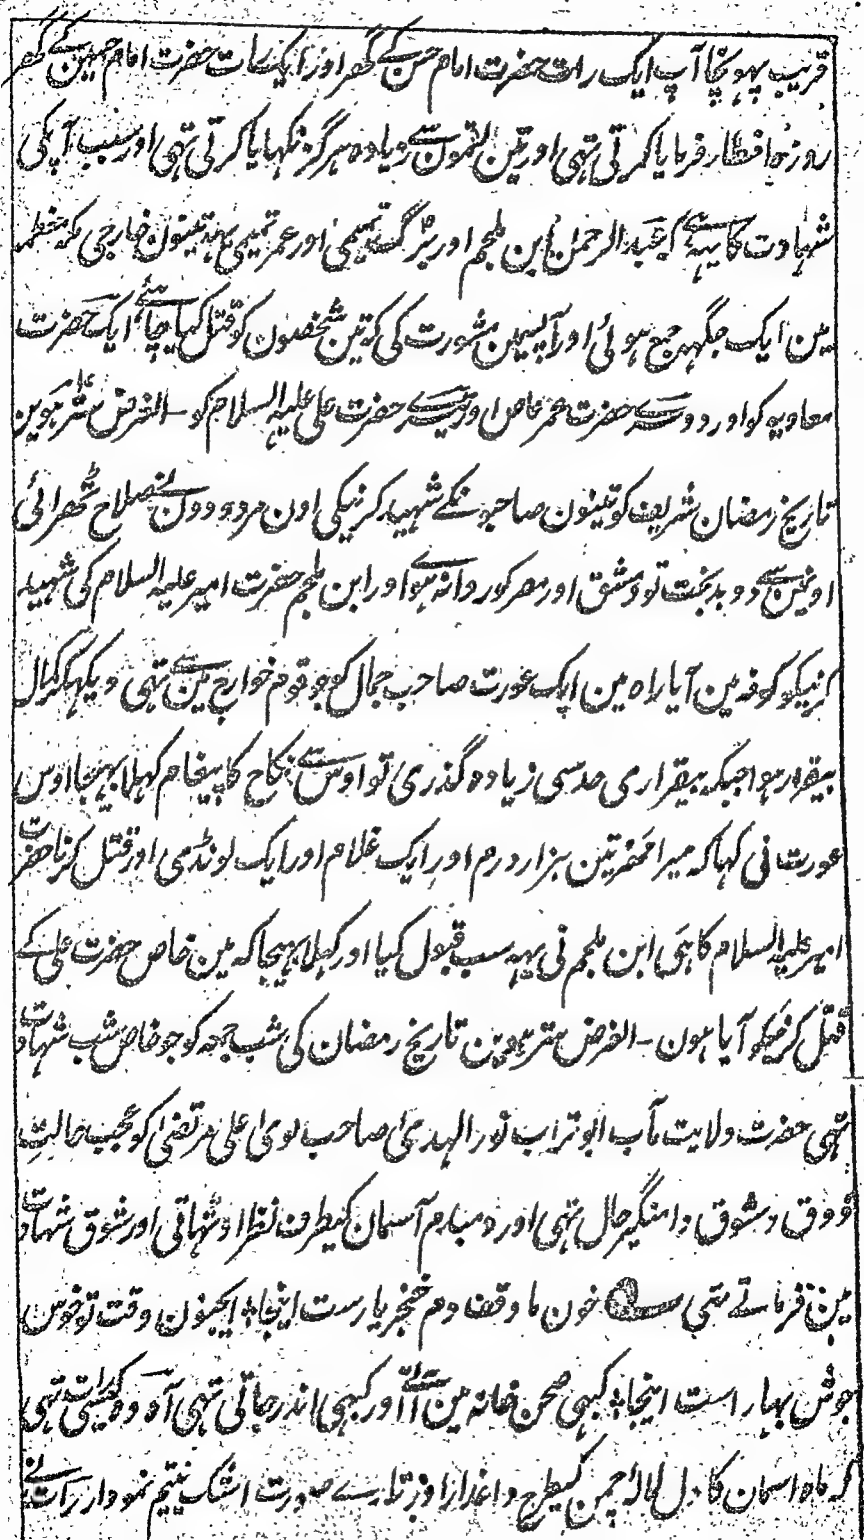 قریب پہونچا آپ ایک رات حضرت امام حسن کے گھر اور ایک رات حضرت امام حسین کے گھر
روزہ افطار فرمایا کرتی تہی اور تین لقمون سے زیادہ ہرگز نکہایا کرتی تہی اور سبب آپکی
شہادت کا یہہ ہے کہ عبد الرحمٰن ابن ملجم اور برک تمیمی اور عمر تمیمی یہہ تینون خارجی مکہ معظمہ
مین ایک جگہہ جمع ہوئی اور آپسمین مشورت کی کہ تین شخصون کو قتل کیا چاہئے ایک حضرت
معاویہ کو اور دوسرے حضرت عمر عاص اور تیسرے حضرت علی علیہ السلام کو ۔ الغرض سترہوین
تاریخ رمضان شریف کو تینون صاحبونکے شہید کرنیکی اون مردودون نے صلاح ٹھرائی
اونمین سے دو بدبخت تو دمشق اور مصر کو روانہ ہوے اور ابن ملجم حضرت امیر علیہ السلام کی شہید
کرنیکو کوفہ مین آیا راہ مین ایک عورت صاحب جمال کو جو قوم خوارج مین سے تہی دیکہکر کمال
بیقرار ہوا جبکہ بیقراری حدسی زیادہ گذری تو اوس سے نکاح کا پیغام کہلا بہیجا اوس
عورت نی کہا کہ میرا مہر تین ہزار درم اور ایک غلام اور ایک لونڈی اور قتل کرنا حضرت
امیر علیہ السلام کا ہی ابن ملجم نی یہہ سب قبول کیا اور کہلا بہیجا کہ مین خاص حضرت علی کے
قتل کرنیکو آیا ہون ۔ الغرض سترہوین تاریخ رمضان کی شب جمعہ کو جو خاص شب شہادت
تہی حضرت ولایت مآب ابو تراب نور الہدیٰ صاحب لویٰ علی مرتضیٰ کو عجب حالتِ
ذوق و شوق دامنگیر حال تہی اور دمبدم آسمان کیطرف نظر اوٹہاتی اور شوق شہادت
مین فرماتے تہی خون ما وقف دم خنجر یارست اینجا ایجنون وقت تو خوش
جوش بہار است اینجا کبہی صحن خانہ مین آتے اور کبہی اندر جاتی تہی آہ وہ کیسی رات تہی
کہ ماہ آسمان کا دل لالہ چمن کیطرح داغدار اور تارے صورت اشک یتیم نمودار رات نے